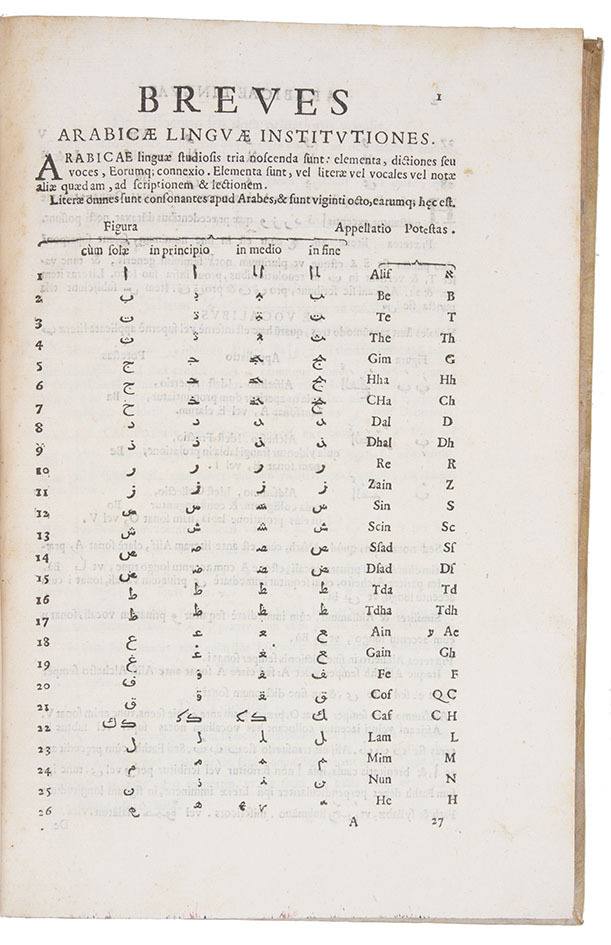 BREVES
1
ARABICÆ LINGVÆ INSTITVTIONES.
ARABICAE linguæ studiosis tria noscenda sunt: elementa, dictiones seu
voces, Eorumq; connexio. Elementa sunt, vel literæ vel vocales vel notæ
aliæ quædam, ad scriptionem & lectionem.
Literæ omnes sunt consonantes apud Arabes, & sunt viginti octo, earumq; hęc est.
Figura Appellatio Potestas.
cùm solæ in principio in medio in fine
1 ا ا ‍ا‍ا ‍ا‍ا Alif א
2 ب Be B
3 ت Te T
4 ث The Th
5 ج Gim G
6 ح Hha Hh
7 خ CHa Ch
8 د د د د Dal D
9 ذ ذ ذ ذ Dhal Dh
10 ر ر ر ر Re R
11 ز ز ز ز Zain Z
12 س Sin S
13 ش Scin Sc
14 ص Ssad Ss
15 ض Dsad Ds
16 ط ط ط ط Tda Td
17 ظ ظ ظ ظ Tdha Tdh
18 ع Ain ע Ae
19 غ Gain Gh
20 ف Fe F
21 ق Cof QC
22 ك Caf CH
23 ل Lam L
24 م Mim M
25 ن Nun N
26 ه He H
A 27